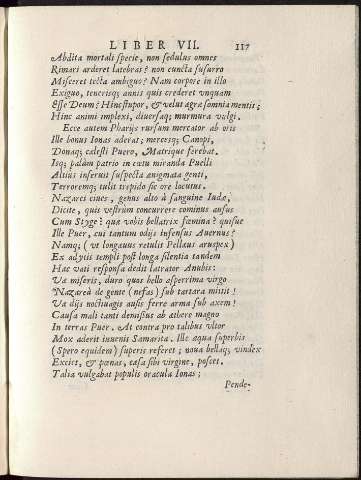 LIBER VII. 117
Abdita mortali specie, non sedulus omnes
Rimari arderet latebras? non cuncta susurro
Misceret tecta ambiguo? Nam corpore in illo
Exiguo, tenerisq; annis quis crederet vnquam
Esse Deum? Hinc stupor, & velut ægræ somnia mentis;
Hinc animi implexi, diuersaq; murmura vulgi.
Ecce autem Pharijs rursum mercator ab oris
Ille bonus Ionas aderat; mercesq; Canopi,
Donaq; cælesti Puero, Matrique ferebat.
Isq; palàm patrio in cœtu miranda Puelli
Altiùs inseruit suspecta ænigmata genti,
Terroremq; tulit trepido sic ore locutus.
Nazaræi ciues, genus alto à sanguine Iuda,
Dicite, quis vestrûm concurrere cominus ausus
Cum Styge? quæ vobis bellatrix fœmina? quisue
Ille Puer, cui tantum odijs infensus Auernus?
Namq; (vt longæuus retulit Pellæus aruspex)
Ex adytis templi post longa silentia tandem
Hac vati responsa dedit latrator Anubis:
Væ miseris, duro quos bello asperrima virgo
Nazareâ de gente (nefas) sub tartara misit!
Væ dijs noctiuagis ausis ferre arma sub axem!
Causa mali tanti demissus ab æthere magno
In terras Puer. At contra pro talibus vltor
Mox aderit iuuenis Samarita. Ille æqua superbis
(Spero equidem) superis referet; noua bellaq; vindex
Exciet, & pœnas, cæsa sibi virgine, poscet.
Talia vulgabat populis oracula Ionas;
Pende-